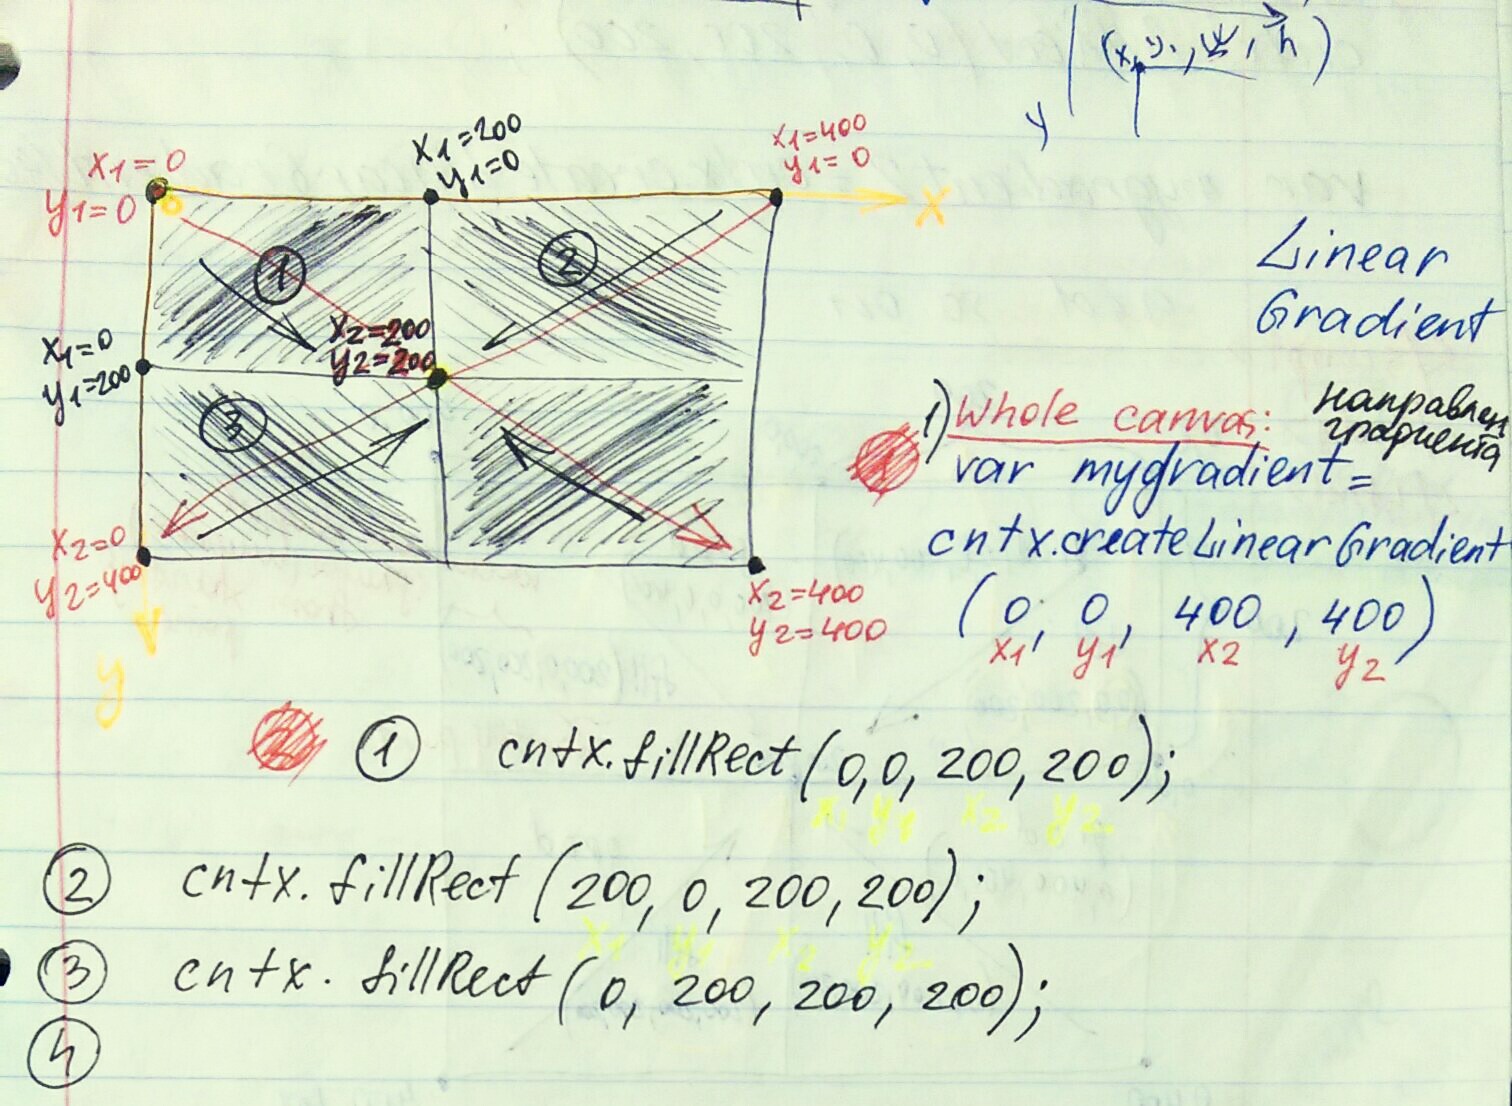 (x, y, w, h)
y
x1=0
y1=0
x1=200
y1=0
x1=400
y1=0
x
Linear
Gradient
1
2
x2=200
y2=200
x1=0
y1=200
3
x2=0
y2=400
x2=400
y2=400
y
1) Whole canvas:
направлен
градиента
1
var mygradient=
cntx.createLinearGradient
(0, 0, 400, 400)
x1 y1 x2 y2
2 1 cntx.fillRect(0,0, 200, 200);
x1 y1 x2 y2
2 cntx.fillRect(200, 0, 200, 200);
x1 y1 x2 y2
3 cntx.fillRect(0, 200, 200, 200);
4